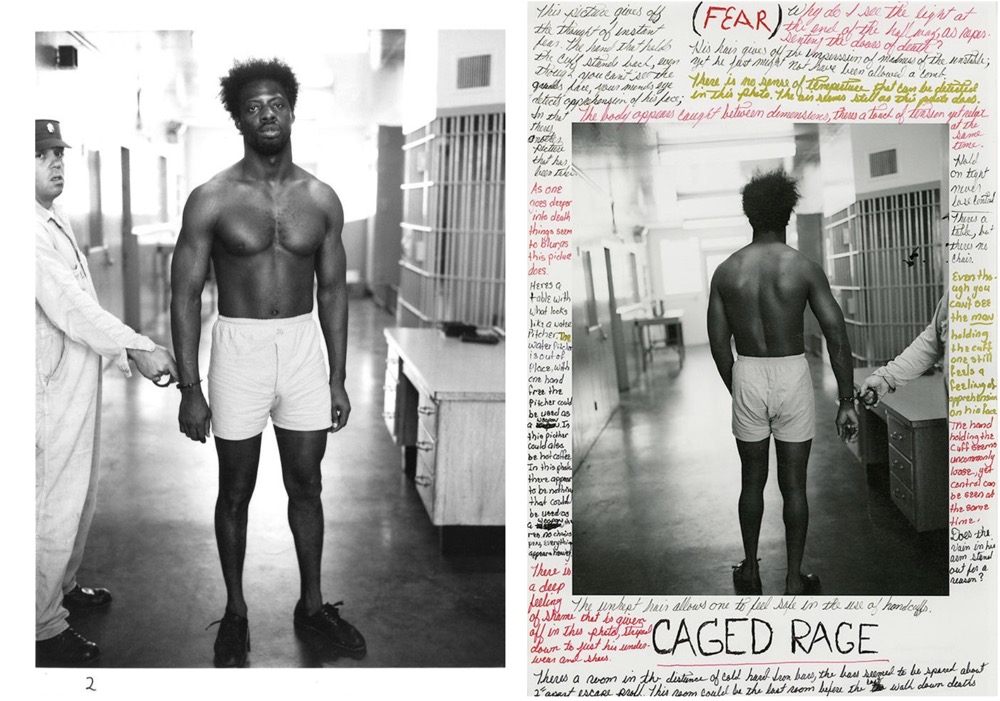 2
This picture gives off
the thought of instant
fear. The hand that holds
the cuff stands back, even
though you cant see the
guards face, your minds eye
detects apprehension of his face;
In that
theres
another
picture
that has
been
(FEAR)
Why do I see the light at
the end of the hall way, as repre-
senting the doors of death?
His hair gives off the impression of madness of the unstable;
yet he just might not have been allowed a comb.
There is no sense of temperture that can be detected
in this photo. The air seems still as this photo does.
The body appears caught between dimensions, theres a touch of tension yet
at the
same
time.
As one
goes deeper
into death
things seem
to blur as
this picture
does.
Heres a
table with
what looks
like a water
Pitcher. The
water Pitcher
is out of
Place, with
one hand
free the
Pitcher could
be used as
a weapon. In
this pitcher
could also
be hot coffee.
In this photo
there appear
to be nothing
that could
be used as
a weapon
no chairs
everything
appears
There is
a deep
feeling
of shame that is given
off in this photo, striped
down to just his under-
wear and shoes.
Hold
on tight
never
lose control
Theres a
table, but
theres no
chair.
Even tho
ugh you
cant see
the man
holding
the cuff
one still
feels a
feeling of
apprehension
on his face
The hand
holding the
cuff seems
uncommonly
loose, yet
control can
be seen at
the same
time.
Does the
vain in his
arm stand
out for a
reason?
The unkept hair allows one to feel safe in the use of handcuffs.
CAGED RAGE
Theres a room in the distance of cold hard Iron bars, the bars seemed to be spared about
2" apart escape proll. This room could be the last room before the walk down deaths